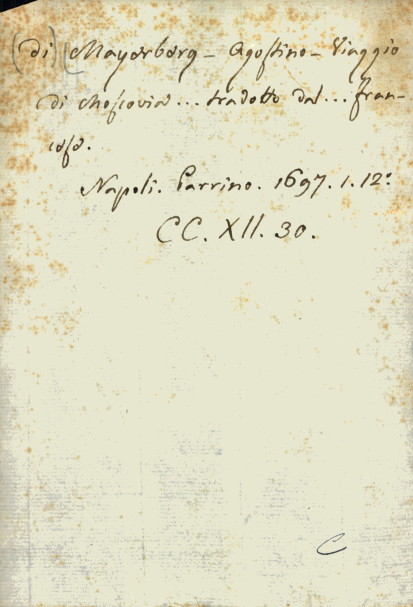 (di) (Mayerberg - Agostino - Viaggio
di Moscovia... tradotto dal... fran-
cese.
Napoli. Parrino. 1697. 1. 12:
CC. XII. 30.
C